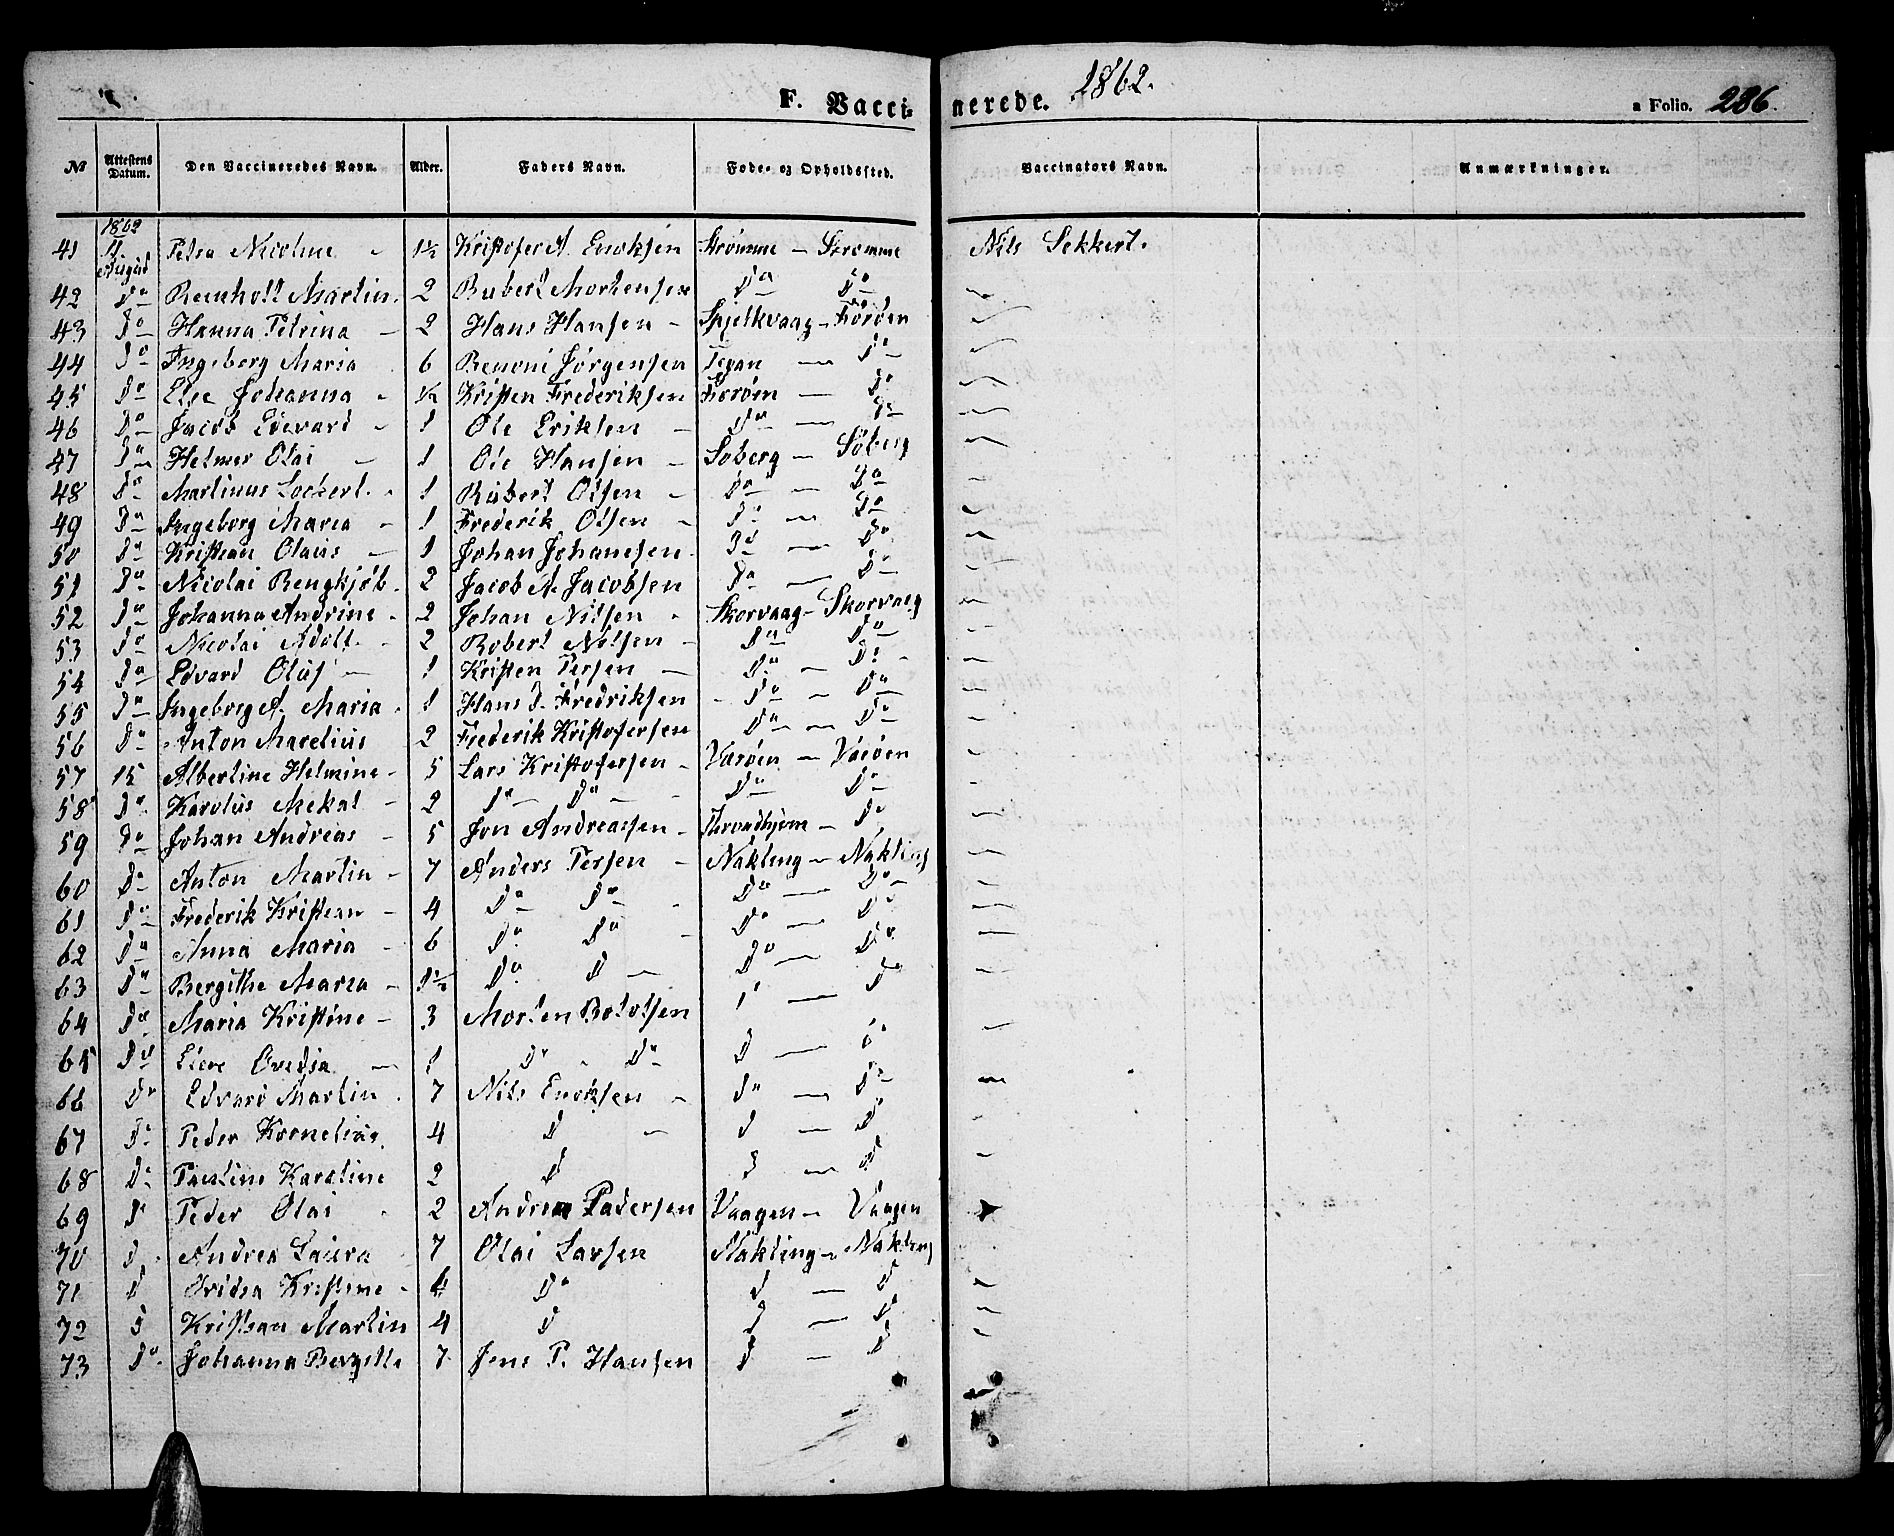 F. Vacci- nerede. 1862. a Folio. 286.
№ Attestens Datum. Den Vaccineredes Navn. Alder. Faders Navn. Føde- og Opholdssted. Vaccinators Navn. Anmærkninger.
1862
41 11 August Petra Nicoline - 1½ Kristofer A. Enoksen Strømme - Strømme Nils Sekkert.
42 Do Reinholt Martin. 2 Rubert Mortensen Do Do
43 Do Hanna Petrina - 2 Hans Hansen - Spjelkvaag - Forøen
44 Do Ingeborg Maria 6 Benoni Jørgensen - Do
45 Do Else Johanna - ½ Kristen Frederiksen Forøen - Do
46 Do Jacob Edevard - 1 Ole Eriksen - Do - Do
47 Do Helmer Olai - 1 Ole Hansen - Soberg - Søberg
48 Do Martinus Lockert. - 1 Rubert Olsen - Do - Do
49 Do Ingeborg Maria - 1 Frederik Olsen - Do - Do
50 Do Kristian Olaus - 1 Johan Johansen. Do - Do
51 Do Nicolai Bengkjøb. 2 Jacob A. Jacobsen Do - Do
52 Do Johanna Andrine - 2 Johan Nilsen - Skorvaag - Skorvaag
53 Do Nicolai Adolf. - 2 Robert Nilsen - Do Do
54 Do Edvard Olus - 1 Kristen Persen - Do - Do -
55 Do Ingeborg A. Maria - 1 Hans D. Fredriksen - Do - Do
56 Do Anton Marelius 2 Frederik Kristofersen Do - Do
57 15 Albertine Helmine - 5 Lars Kristofersen - Varøen - Varøen
58 Do Karolus Mekal - 2 Do - Do - Do Do
59 Do Johan Andreas - 5 Jon Andreassen - - Do
60 Do Anton Martin - 7 Anders Persen - Nakling - Nakling
61 Do Frederik Kristian - 4 Do Do - Do - Do
62 Do Anna Maria - 6 Do Do - Do - Do
63 Do Bergithe Maria - 1½ Do D - Do - Do
64 Do Maria Kristine - 3 Morten Bolotsen - Do
65 Do Ovedia - 1 Do - Do D -
66 Do Edvard Martin. 7 Nils Enoksen - Do - Do
67 Do Peder Kornelius. 4 D - D - Do
68 Do Pauline Karoline 2 D D - D
69 Do Peder Olai - 2 Andrea Pedersen Vaagen - Vaagen
70 D. Andrea Laura 7 Olai Larsen Nakling - Nakling
71 D Ovidia Kristine - 6 Do D - D
72 D Kristian Martin 4 D D - D
73 Do. Johanna Bergitte 7 Jens P. Hansen D - D